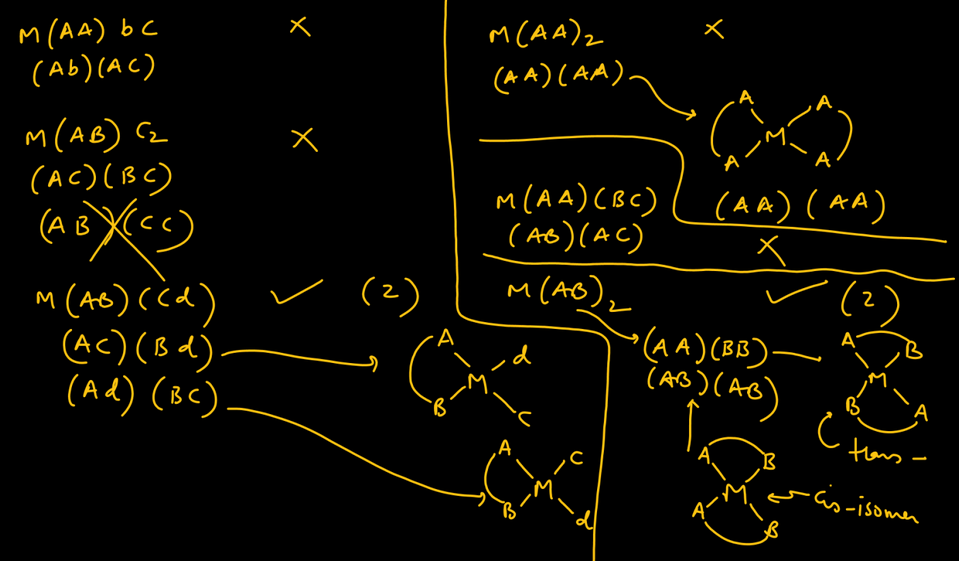 M(AA) bC ×
(Ab)(AC)
M(AB) C2 ×
(AC)(BC)
(AB)(CC)
M(AB)(Cd) ✓ (2)
(AC)(Bd)
(Ad)(BC)
A
d
M
B
C
A
C
M
B
d
M(AA)2 ×
(AA)(AA)
A A
M
A A
(AA)(AA)
M(AA)(BC)
(AB)(AC) ×
M(AB)2 ✓ (2)
(AA)(BB)
(AB)(AB)
A B
M
B A
trans -
A B
M cis-isomer
A B